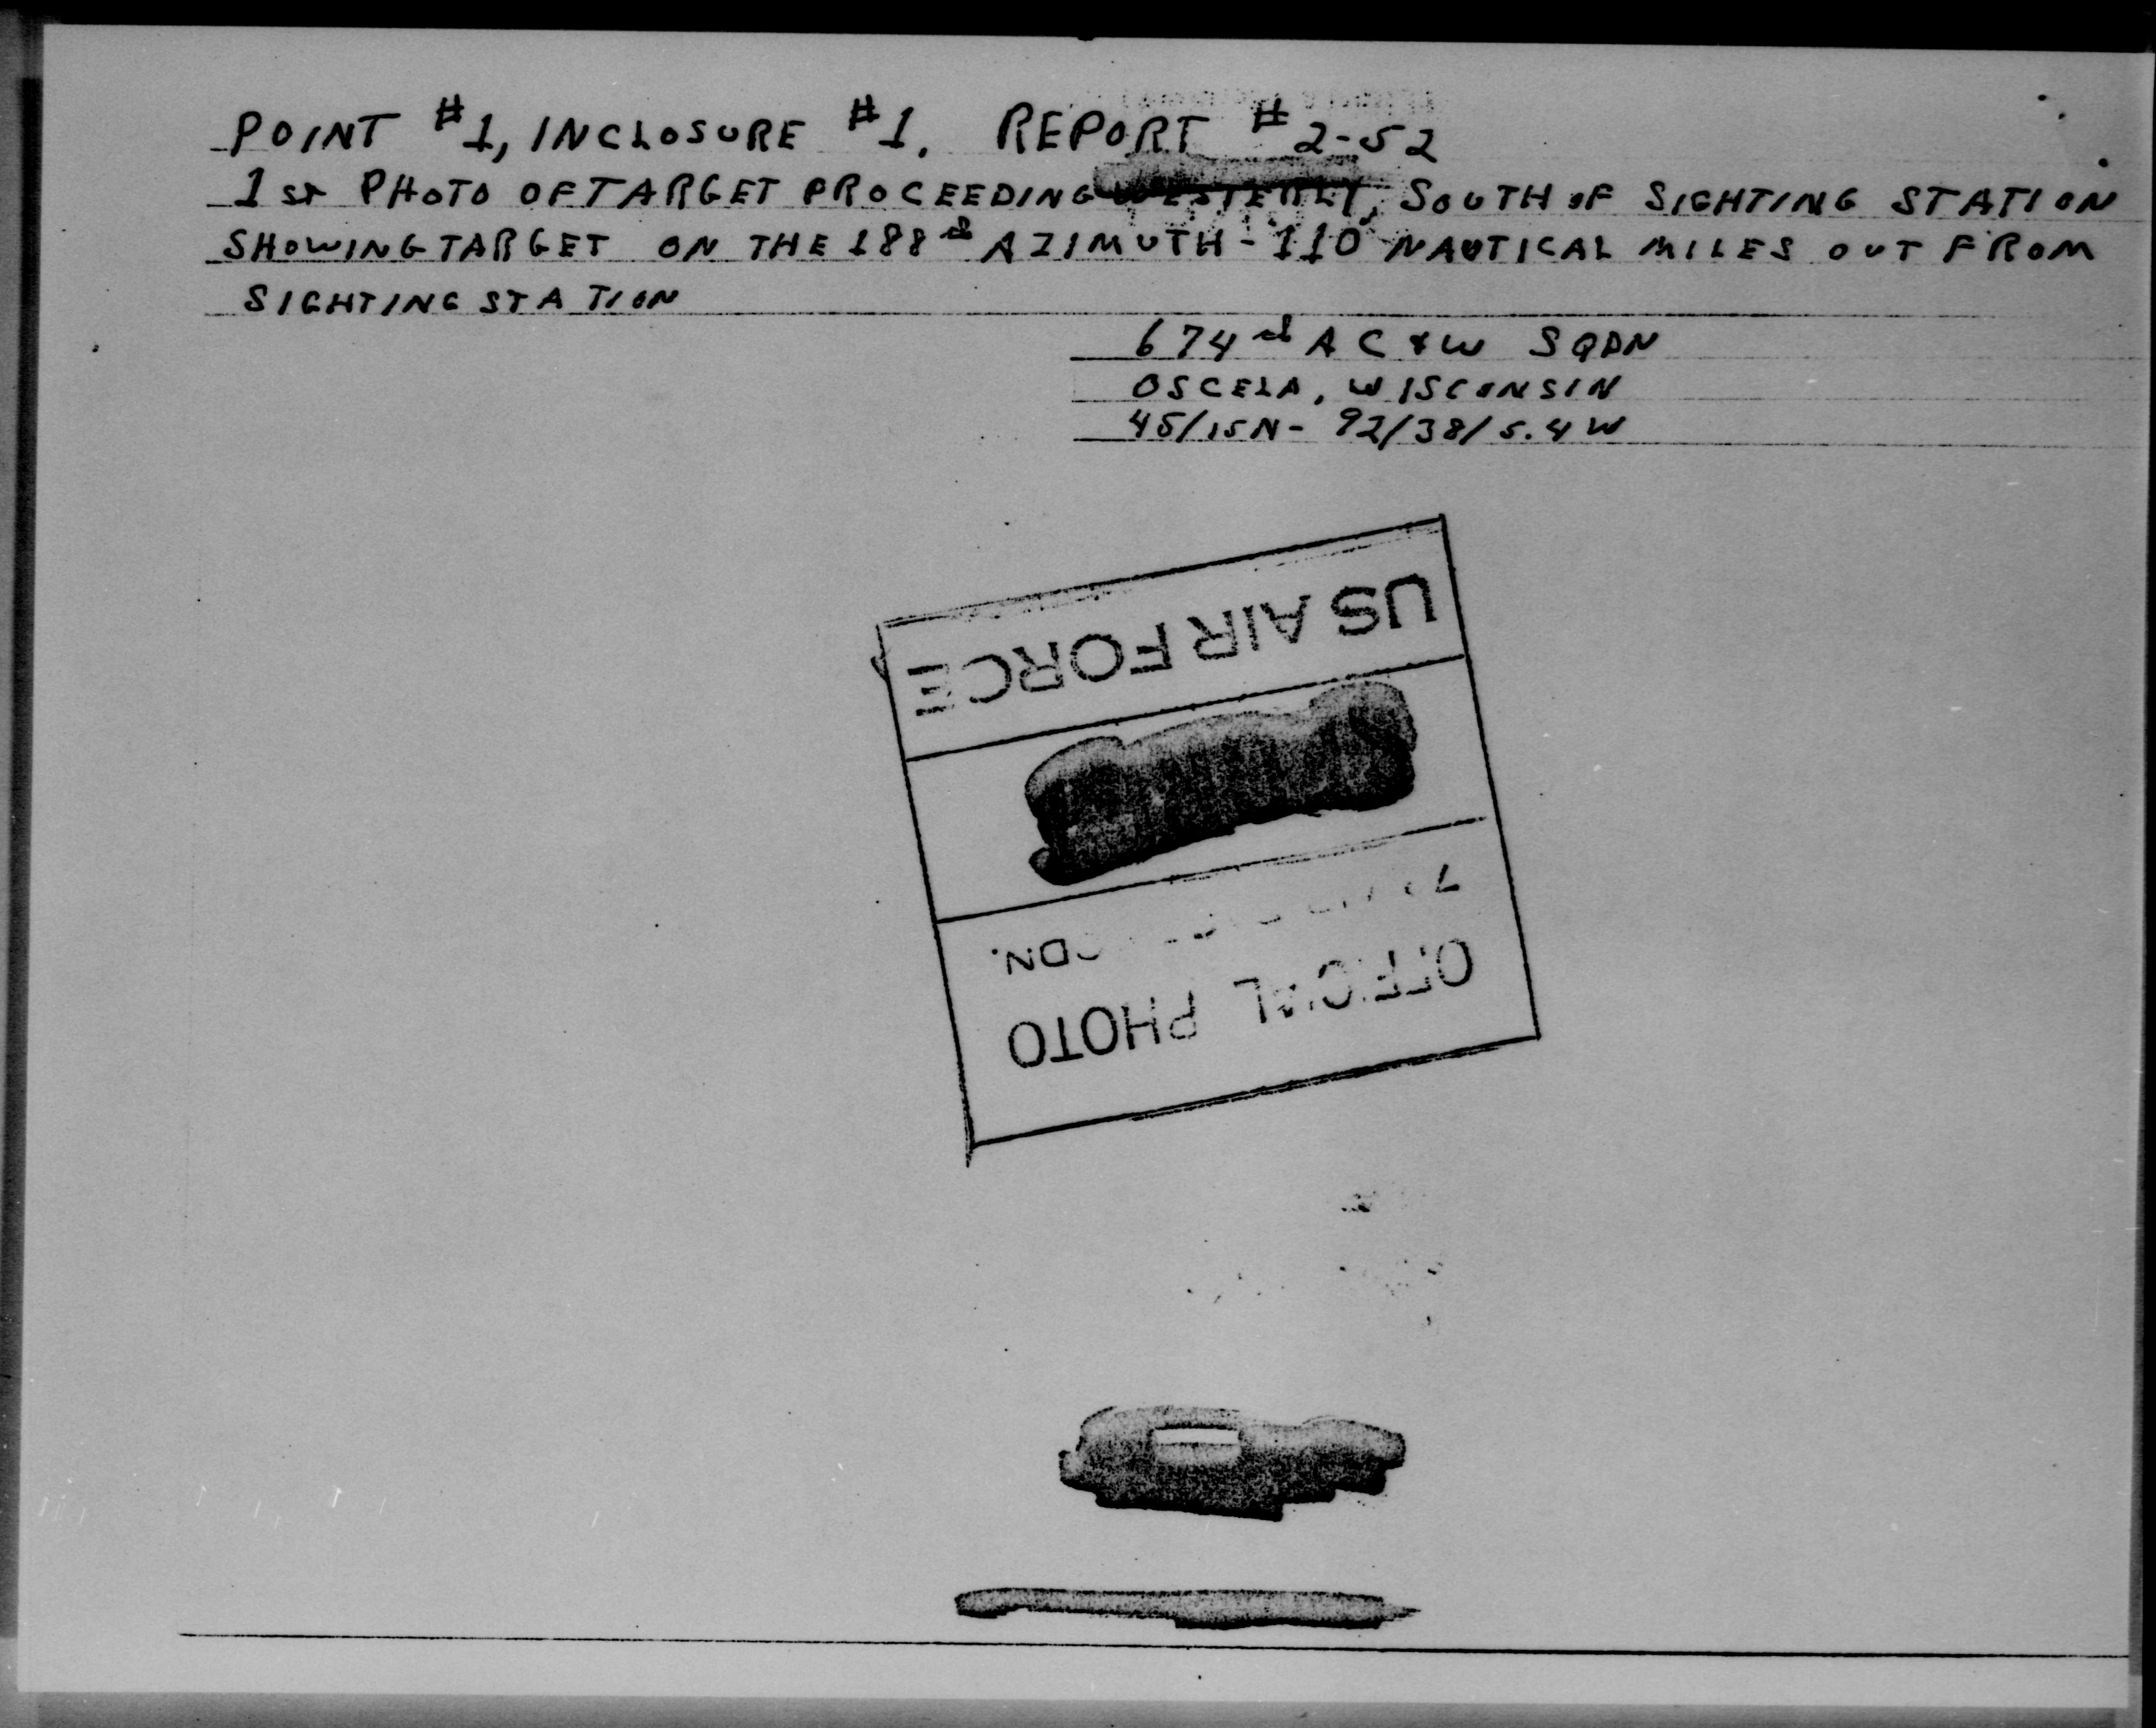 POINT #1, INCLOSURE #1. REPORT #2-52
1st PHOTO OF TARGET PROCEEDING WESTERLY, SOUTH OF SIGHTING STATION
SHOWING TARGET ON THE 188rd AZIMUTH - 110 NAUTICAL MILES OUT FROM
SIGHTING STATION
674rd AC & W SQDN
OSCELA, WISCONSIN
45/15N - 92/38/5.4W
OFFICIAL PHOTO
US AIR FORCE